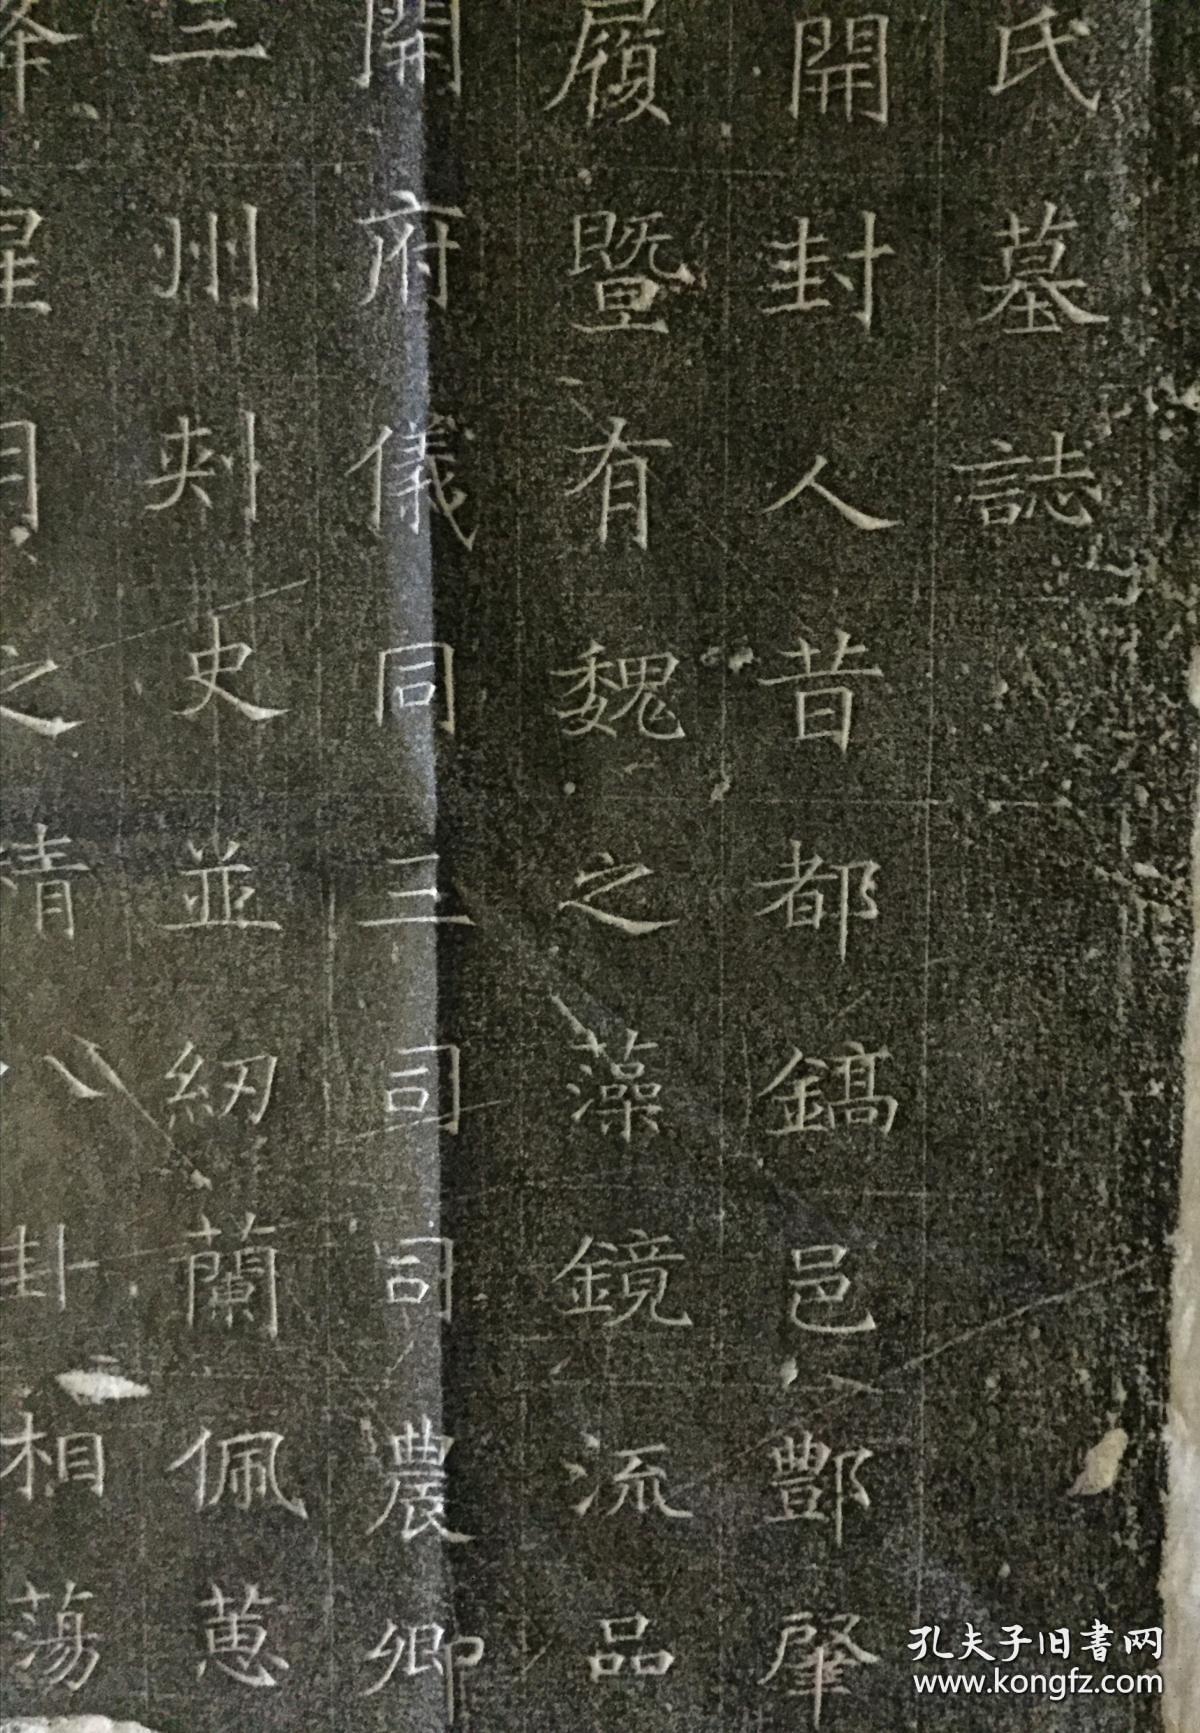 氏墓誌
開封人昔都鎬邑酆肇
履暨有魏之藻鏡流品
開府儀同三司司農卿
三州刾史並紉蘭佩蕙
之清卦相蕩
孔夫子旧書网
www.kongfz.com